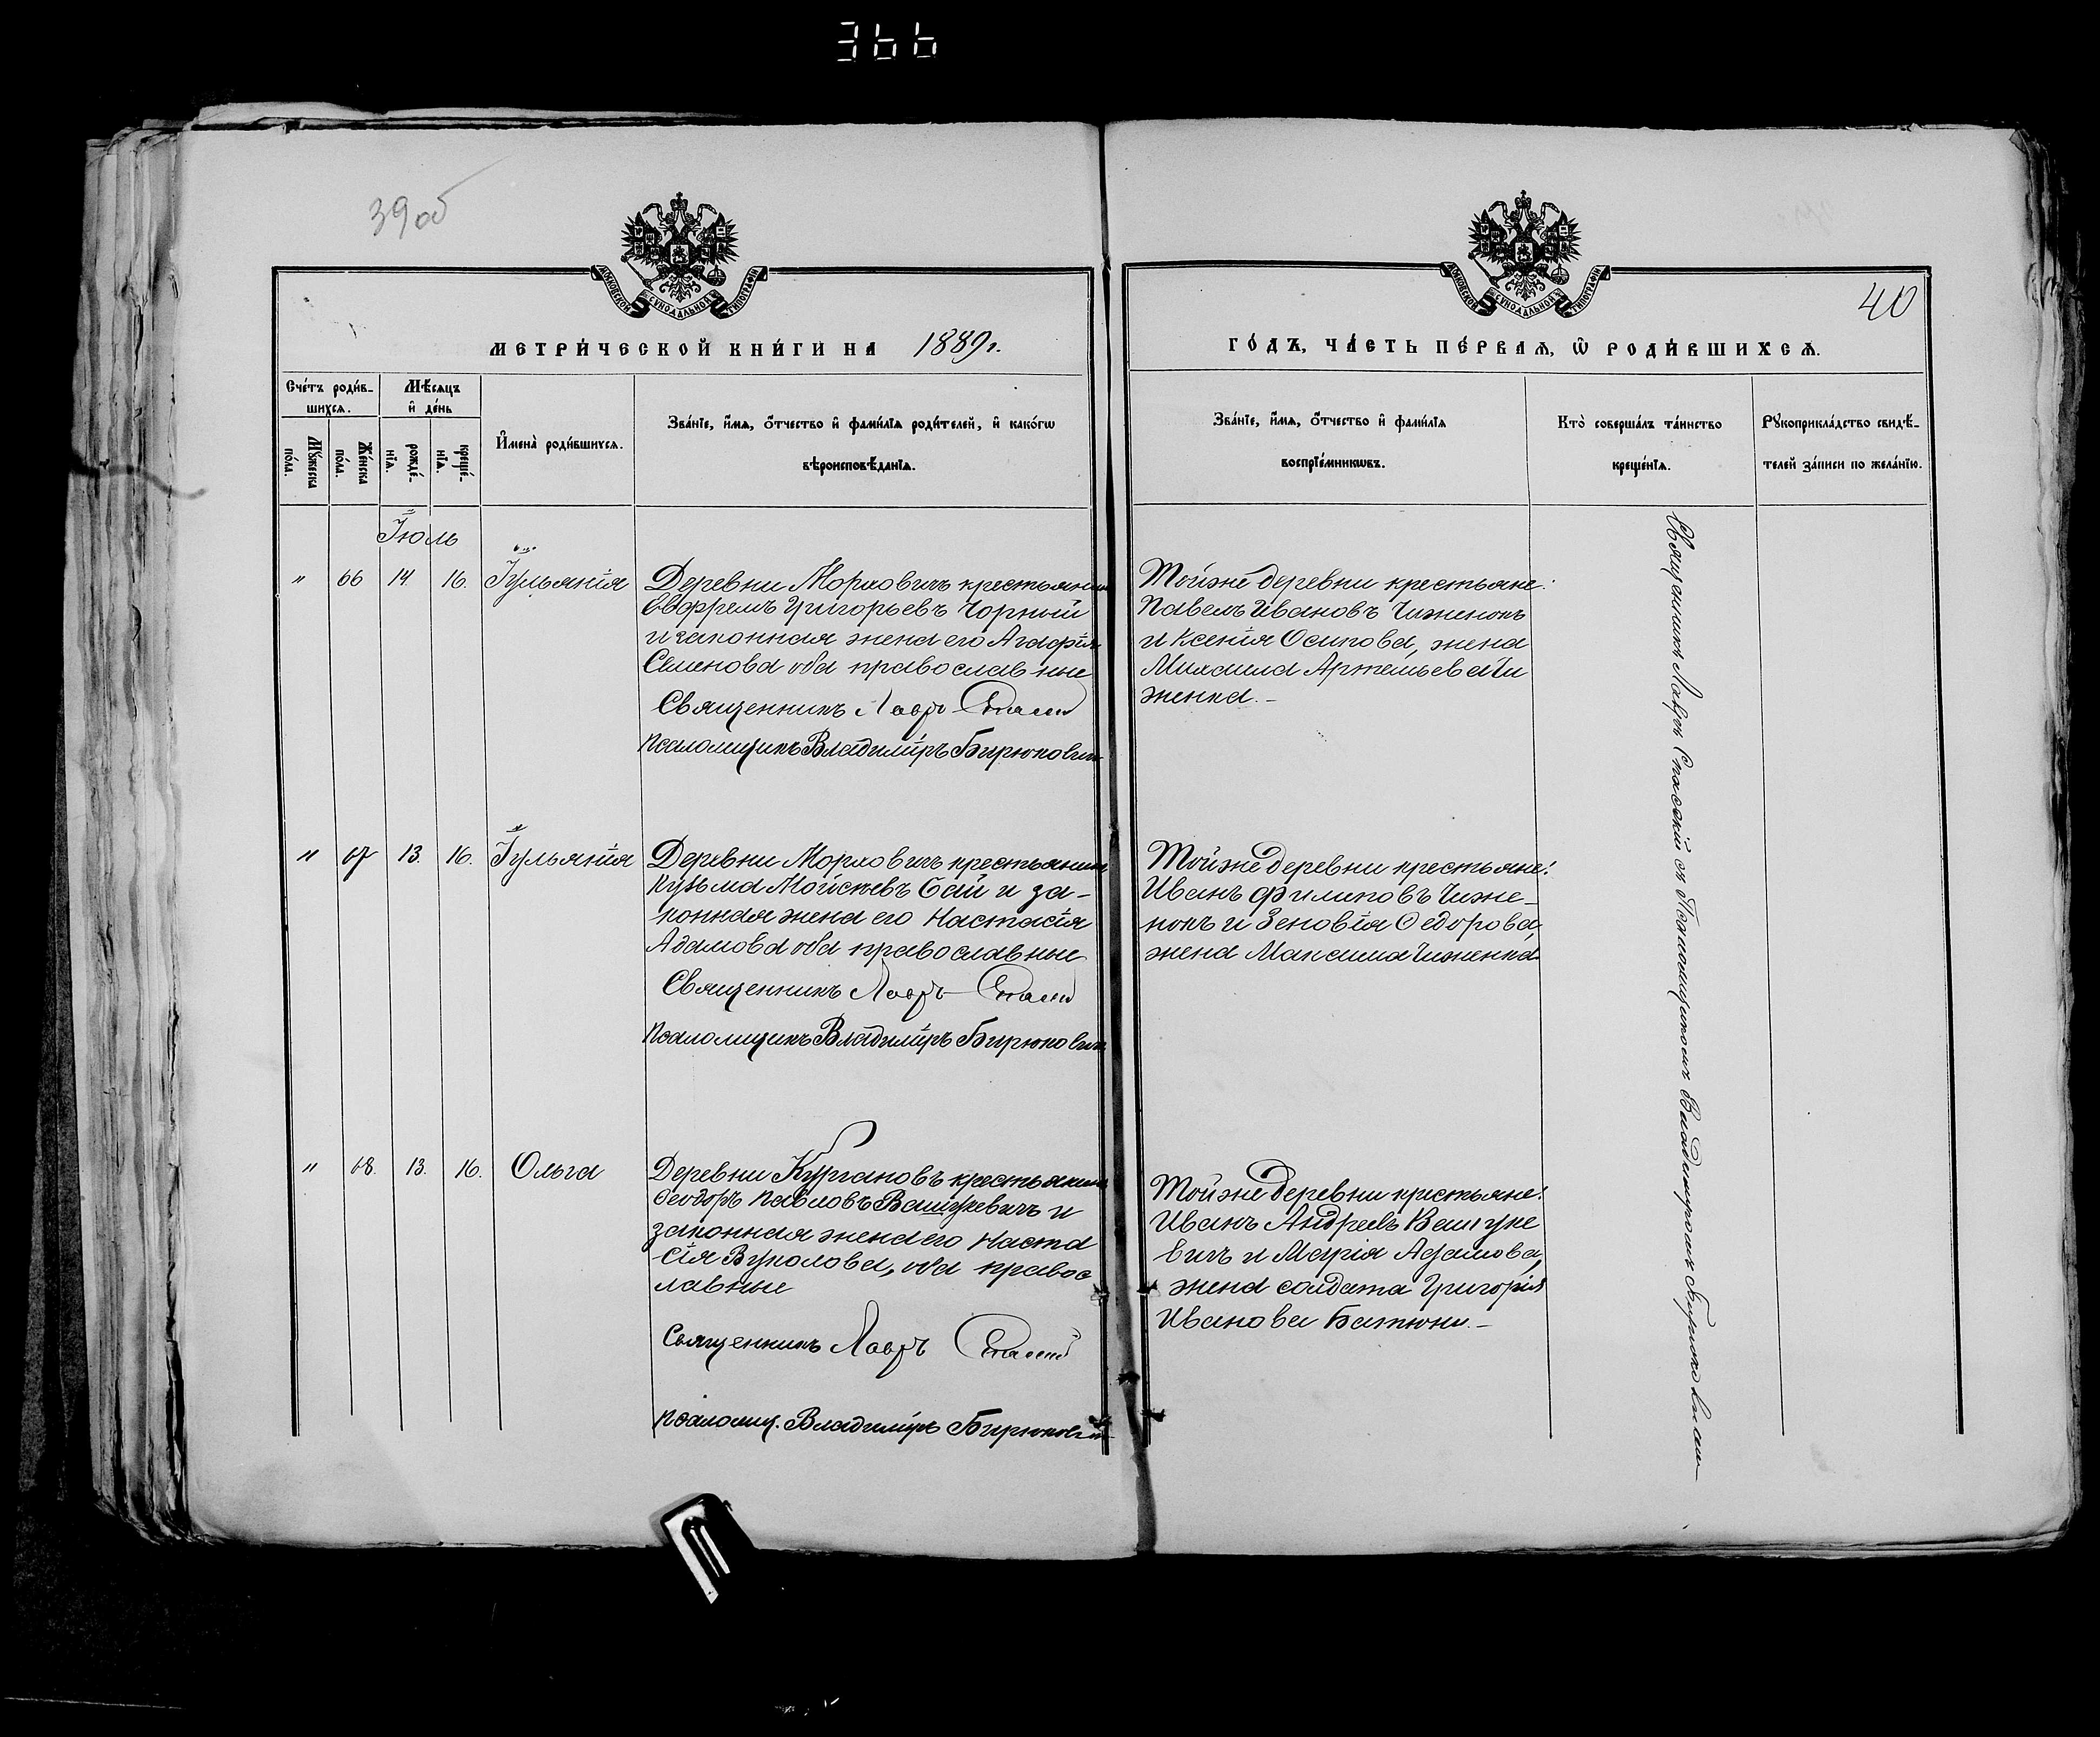 366
39об
МОСКОВСКОЙ СѴНОДАЛЬНОЙ ТИПОГРАФІИ
МЕТРИ́ЧЕСКОЙ КНИ́ГИ НА 1889 г.
Сче́тъ роди́в-
шихсѧ.
Мѣ́сѧцъ
и҆ де́нь
Мꙋ́жеска
по́ла.
Же́нска
по́ла.
рожде́-
нїѧ.
креще́-
нїѧ.
И҆мена̀ роди́вшихсѧ.
Зва́нїе, и҆́мѧ, ѻ҆́тчество и҆ фами́лїѧ роди́телей, и҆ како́гѡ
вѣроисповѣ́данїѧ.
Іюль
" 66 14 16. Іульянія
Деревни Морховичъ крестьянинъ
Евфремъ Григорьевъ Чорный
и законная жена его Агафія
Семенова оба православные
Священникъ Лавръ Спасскій
Псаломщикъ Владиміръ Бирюковичъ
" 67 13. 16. Іульянія
Деревни Морховичъ крестьянинъ
Кузьма Моисеевъ Сай и за-
конная жена его Настасія
Адамова оба православные
Священникъ Лавръ Спасскій
Псаломщикъ Владиміръ Бирюковичъ
" 68. 13. 16. Ольга
Деревни Кургановъ крестьянинъ
Феодоръ Павловъ Вашукевичъ и
законная жена его Наста
сія Вуколова, оба правос
лавные
Священникъ Лавръ Спасскій
Псаломщ. Владиміръ Бирюковичъ
МОСКОВСКОЙ СѴНОДАЛЬНОЙ ТИПОГРАФІИ
40
ГО́ДЪ, ЧА́СТЬ ПЕ́РВАѦ, Ѽ РОДИ́ВШИХСѦ.
Зва́нїе, и҆́мѧ, ѻ҆́тчество и҆ фами́лїѧ
воспрїе́мникѡвъ.
Кто̀ соверша́лъ та́инство
креще́нїѧ.
Рꙋкоприкла́дство свидѣ́-
телей за́писи по жела́нїю.
Тойже деревни крестьяне:
Павелъ Ивановъ Чиженокъ
и Ксенія Осипова, жена
Михаила Артемьева Чи
женка.-
Тойже деревни крестьяне:
Иванъ Филиповъ Чиже-
нокъ и Зеновія Федорова,
жена Максима Чиженка
Тойже деревни крестьяне:
Иванъ Андреевъ Вашуке
вичъ и Марія Адамова,
жена солдата Григорія
Иванова Батюни.-
Священникъ Лавръ Спасскій съ Псаломщикомъ Владиміромъ Бирюковичемъ